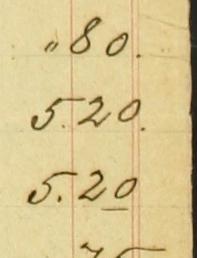 " 80.
5.20.
5.20